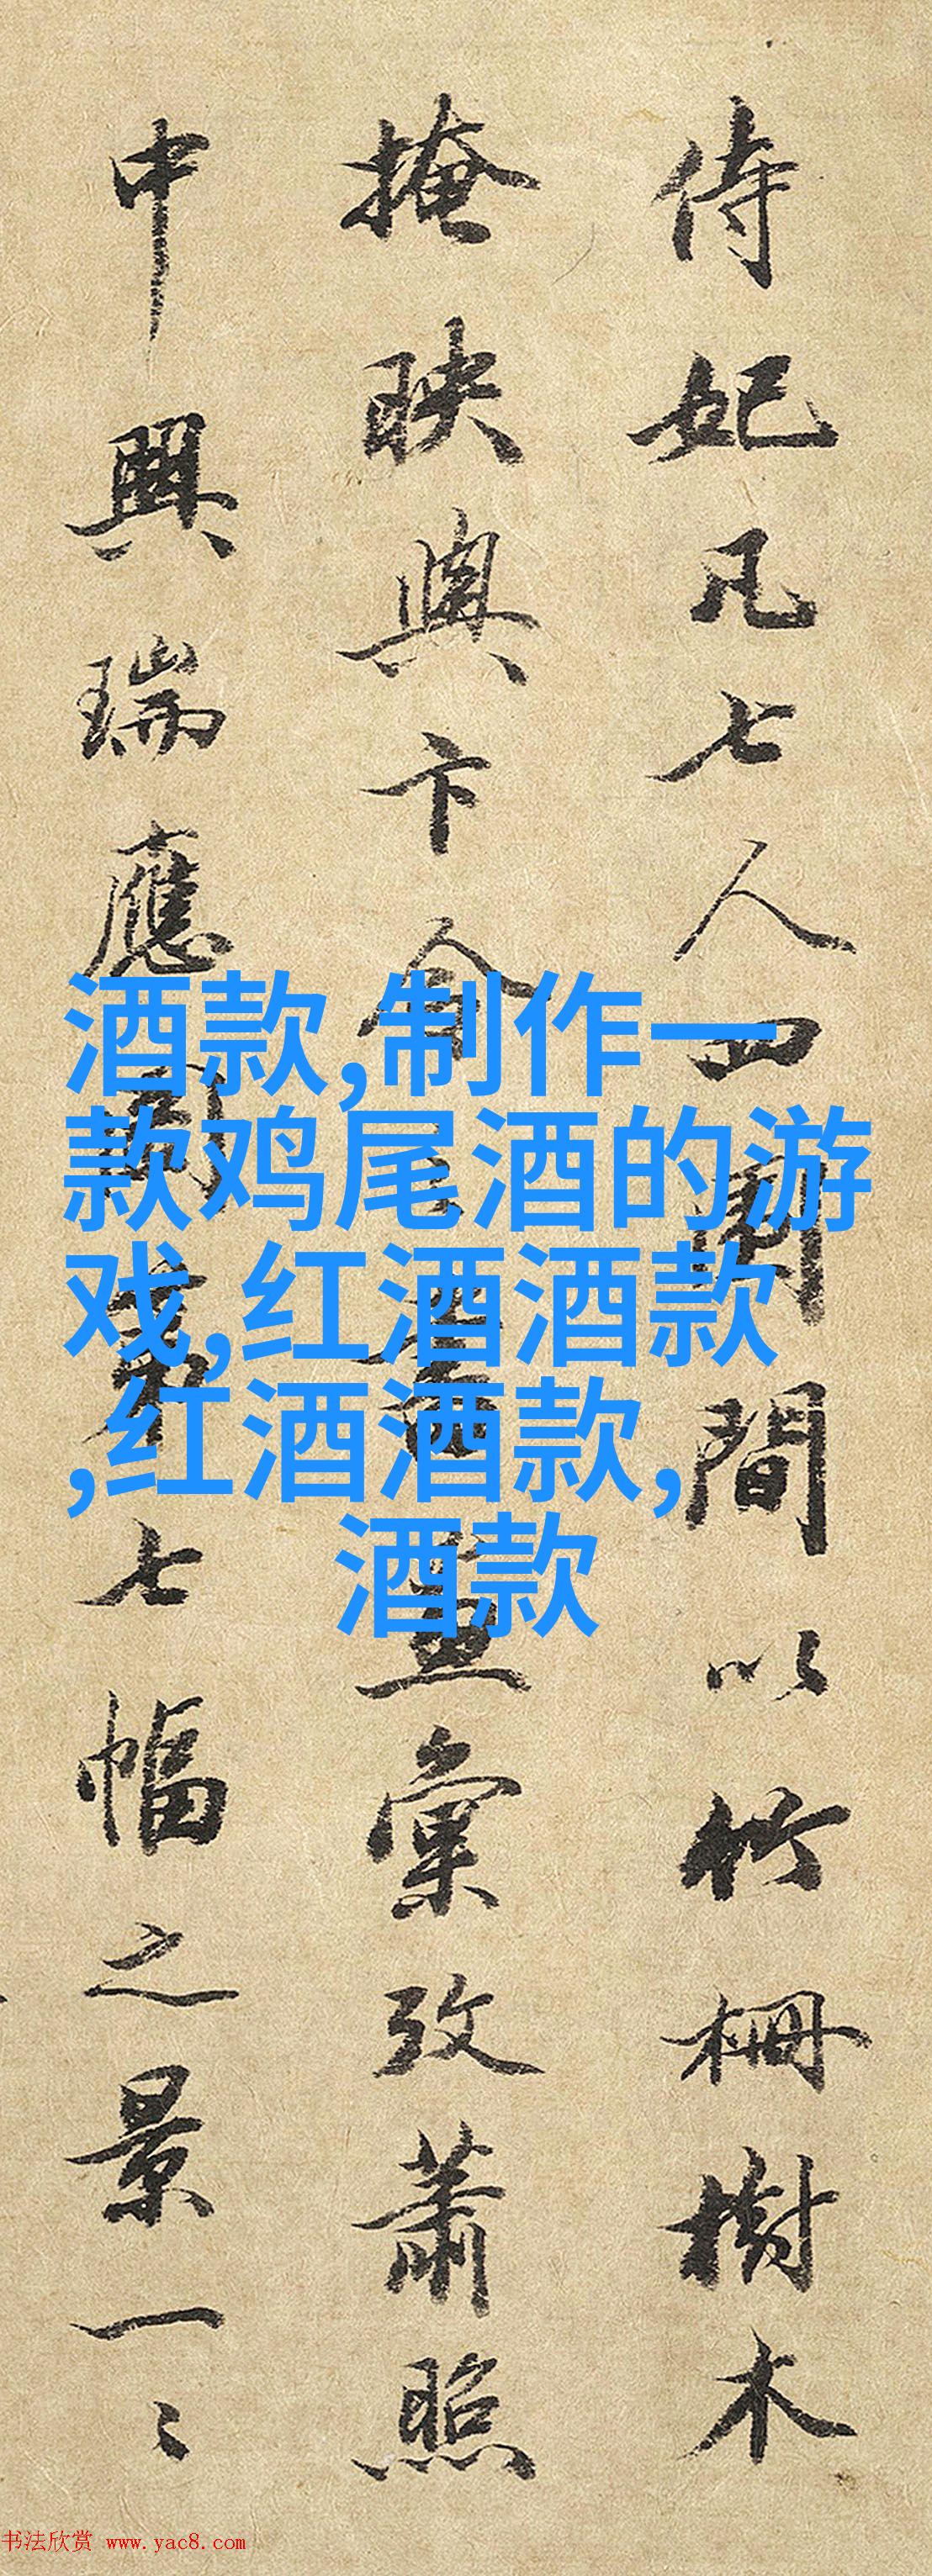 侍妃凡七人四闌間以竹柵樹木
掩映與卞令之畫彙攷蕭照
中興瑞應圖第七幅之景一〻
酒款,制作一
款鸡尾酒的游
戏,红酒酒款
,红酒酒款,
酒款
书法欣赏 www.yac8.com